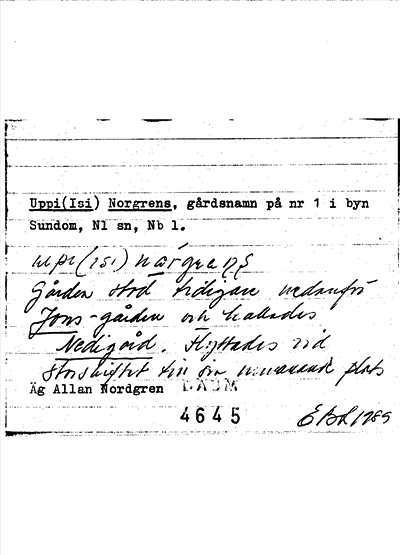 Uppi(Isi) Norgrens, gårdsnamn på nr 1 i byn
Sundom, Nl sn, Nb l.
upi (isi) nårgrens
Gården stod tidigare nedanför
Jons-gården och kallades
Nedigård. Flyttades vid
Storskiftet till sin nuvarande plats
Äg Allan Nordgren DAUM
4645
EBL 1985